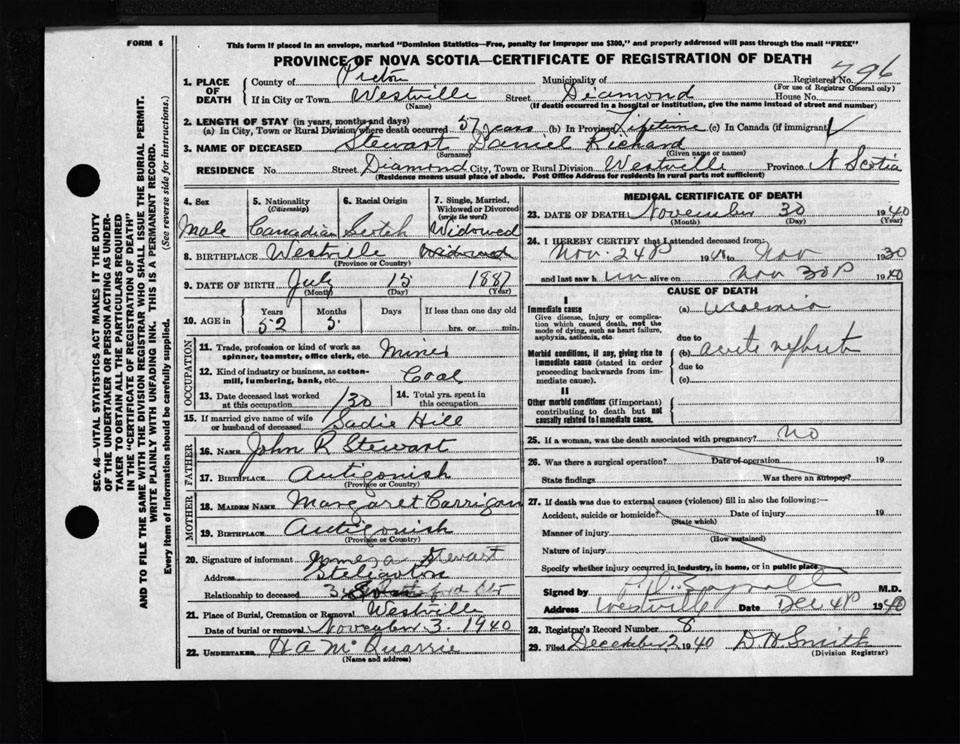 FORM 6
This form if placed in an envelope, marked "Dominion Statistics—Free, penalty for improper use $300," and properly addressed will pass through the mail "FREE"
PROVINCE OF NOVA SCOTIA—CERTIFICATE OF REGISTRATION OF DEATH
1. PLACE OF DEATH County of Pictou Municipality of Registered No. 796
(For use of Registrar General only)
If in City or Town Westville Street Diamond House No.
(Name) (If death occurred in a hospital or institution, give the name instead of street and number)
2. LENGTH OF STAY (in years, months and days)
(a) In City, Town or Rural Division where death occurred 57 years (b) In Province Lifetime (c) In Canada (if immigrant)
3. NAME OF DECEASED Stewart Daniel Richard
(Surname) (Given name or names)
RESIDENCE No. Street Diamond City, Town or Rural Division Westville Province N Scotia
(Residence means usual place of abode. Post Office Address for residents in rural parts not sufficient)
4. Sex Male
5. Nationality (Citizenship) Canadian
6. Racial Origin Scotch
7. Single, Married, Widowed or Divorced (write the word) Widowed
8. BIRTHPLACE Westville Widowed
(Province or Country)
9. DATE OF BIRTH July 15 1887
(Month) (Day) (Year)
10. AGE in Years 52 Months 5 Days If less than one day old hrs. or min.
OCCUPATION
11. Trade, profession or kind of work as spinner, teamster, office clerk, etc. Miner
12. Kind of industry or business, as cotton-mill, lumbering, bank, etc. Coal
13. Date deceased last worked at this occupation /30
14. Total yrs. spent in this occupation
15. If married give name of wife or husband of deceased Sadie Hill
FATHER
16. NAME John R Stewart
17. BIRTHPLACE Antigonish
(Province or Country)
MOTHER
18. MAIDEN NAME Margaret Carrigan
19. BIRTHPLACE Antigonish
(Province or Country)
20. Signature of informant Stewart
Address Stellarton
Relationship to deceased 3
21. Place of Burial, Cremation or Removal Westville
Date of burial or removal November 3. 1940
22. UNDERTAKER H A McQuarrie
(Name and address)
MEDICAL CERTIFICATE OF DEATH
23. DATE OF DEATH November 30 1940
(Month) (Day) (Year)
24. I HEREBY CERTIFY that I attended deceased from:
Nov. 24 19 to Nov 1930
and last saw h im alive on Nov 30 1940
CAUSE OF DEATH
I
Immediate cause
Give disease, injury or complication which caused death, not the mode of dying, such as heart failure, asphyxia, asthenia, etc.
(a) uraemia
due to
Morbid conditions, if any, giving rise to immediate cause (stated in order proceeding backwards from immediate cause).
(b) acute
due to
(c)
II
Other morbid conditions (if important) contributing to death but not causally related to immediate cause.
25. If a woman, was the death associated with pregnancy? no
26. Was there a surgical operation? Date of operation 19
State findings Was there an autopsy?
27. If death was due to external causes (violence) fill in also the following:—
Accident, suicide or homicide? Date of injury 19
(State which)
Manner of injury
(How sustained)
Nature of injury
Specify whether injury occurred in industry, in home, or in public place
Signed by M.D.
Address Westville Date Dec 4 1940
28. Registrar's Record Number 8
29. Filed December 2 1940 D. H. Smith
(Division Registrar)
SEC. 46—VITAL STATISTICS ACT MAKES IT THE DUTY
OF THE UNDERTAKER OR PERSON ACTING AS UNDER-
TAKER TO OBTAIN ALL THE PARTICULARS REQUIRED
IN THE "CERTIFICATE OF REGISTRATION OF DEATH"
AND TO FILE THE SAME WITH THE DIVISION REGISTRAR WHO SHALL ISSUE THE BURIAL PERMIT.
WRITE PLAINLY WITH UNFADING INK. THIS IS A PERMANENT RECORD.
Every item of information should be carefully supplied. (See reverse side for instructions.)